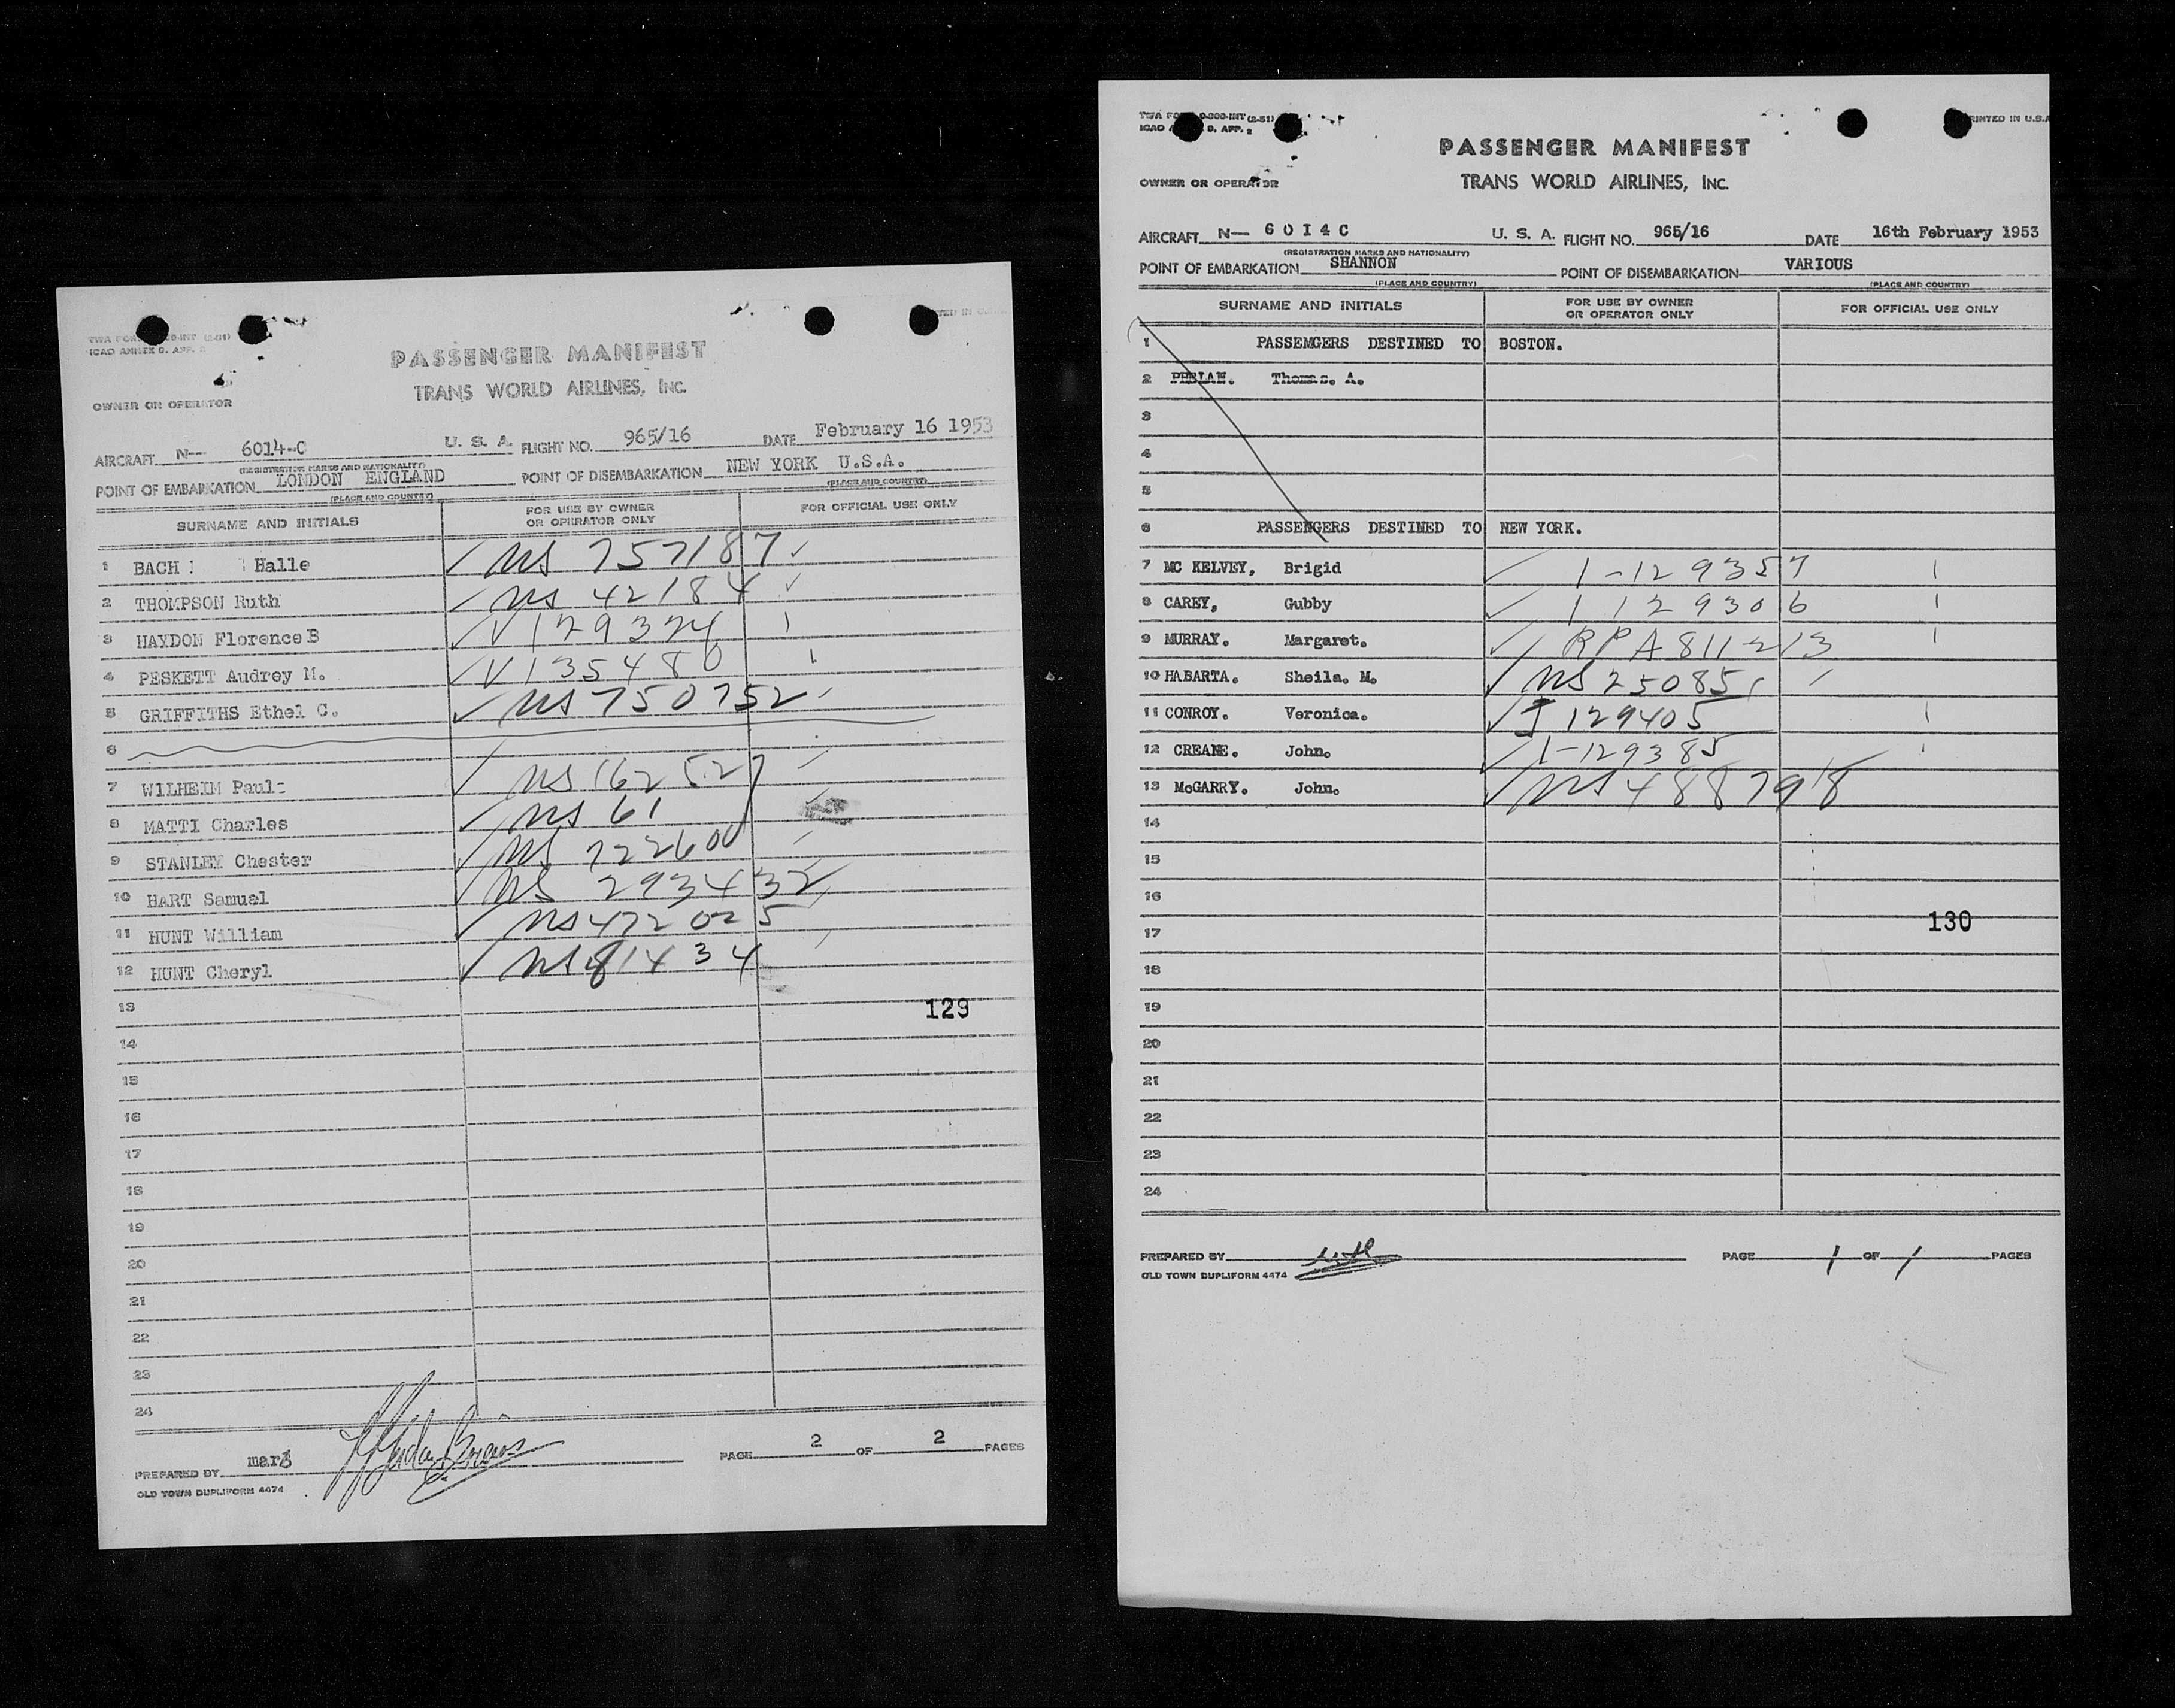 PASSENGER MANIFEST
TRANS WORLD AIRLINES, INC.
OWNER OR OPERATOR
AIRCRAFT N-- 6014-C U. S. A. FLIGHT NO. 965/16 DATE February 16 1953
(REGISTRATION MARKS AND NATIONALITY)
POINT OF EMBARKATION LONDON ENGLAND POINT OF DISEMBARKATION NEW YORK U.S.A.
(PLACE AND COUNTRY) (PLACE AND COUNTRY)
SURNAME AND INITIALS FOR USE BY OWNER OR OPERATOR ONLY FOR OFFICIAL USE ONLY
1 BACH Halle NS 757187
2 THOMPSON Ruth NS 42184
3 HAYDON Florence B V 129374
4 PESKETT Audrey M. V 135480
5 GRIFFITHS Ethel C. NS 750752
6
7 WILHEIM NS 162527
8 MATTI Charles NS 61
9 STANLEY Chester NS 722600
10 HART Samuel NS 293432
11 HUNT William NS 472025
12 HUNT Cheryl NS 81434
13
129
14
15
16
17
18
19
20
21
22
23
24
PREPARED BY PAGE 2 OF 2 PAGES
OLD TOWN DUPLIFORM 4474
TWA (2-51) PRINTED IN U.S.A
ICAO D. APP. 2
PASSENGER MANIFEST
OWNER OR OPERATOR TRANS WORLD AIRLINES, INC.
AIRCRAFT N— 6014C U. S. A. FLIGHT NO. 965/16 DATE 16th February 1953
(REGISTRATION MARKS AND NATIONALITY)
POINT OF EMBARKATION SHANNON POINT OF DISEMBARKATION VARIOUS
(PLACE AND COUNTRY) (PLACE AND COUNTRY)
SURNAME AND INITIALS FOR USE BY OWNER OR OPERATOR ONLY FOR OFFICIAL USE ONLY
1 PASSEMGERS DESTINED TO BOSTON.
2 PHELAN. Thomas. A.
3
4
5
6 PASSENGERS DESTINED TO NEW YORK.
7 MC KELVEY, Brigid 1-129357
8 CAREY, Gubby 1 129306
9 MURRAY. Margaret. RPA 811213
10 HABARTA. Sheila. M. NS 25085
11 CONROY. Veronica. I 129405
12 CREANE. John. 1-129385
13 McGARRY. John. NS 488798
14
15
16
17 130
18
19
20
21
22
23
24
PREPARED BY PAGE 1 OF 1 PAGES
OLD TOWN DUPLIFORM 4474